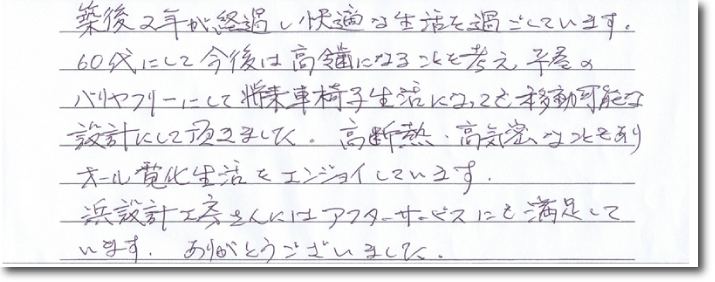 築後2年が経過し快適な生活を過ごしています。
60代にして今後は高齢になることを考え平屋の
バリヤフリーにして将来車椅子生活になっても移動可能な
設計にして頂きました。高断熱・高気密なこともあり
オール電化生活をエンジョイしています。
浜設計工房さんにはアフターサービスにも満足して
います。ありがとうございました。